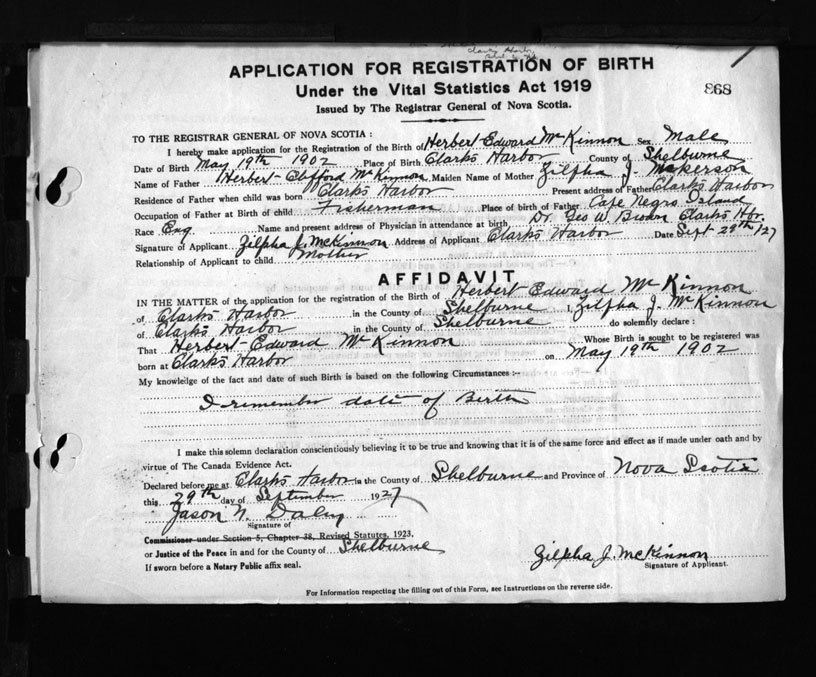 APPLICATION FOR REGISTRATION OF BIRTH
Under the Vital Statistics Act 1919
868
Issued by The Registrar General of Nova Scotia.
TO THE REGISTRAR GENERAL OF NOVA SCOTIA :
I hereby make application for the Registration of the Birth of Herbert Edward McKinnon Sex Male
Date of Birth May 19th 1902 Place of Birth Clarks Harbor County of Shelburne
Name of Father Herbert Clifford McKinnon Maiden Name of Mother Zilpha J.
Residence of Father when child was born Clarks Harbor Present address of Father Clarks Harbor
Occupation of Father at Birth of child Fisherman Place of birth of Father Cape Negro Island
Race Eng Name and present address of Physician in attendance at birth Dr. Geo W. Brown Clarks Hbr.
Signature of Applicant Zilpha J. McKinnon Address of Applicant Clarks Harbor Date Sept 29th/27
Relationship of Applicant to child Mother
AFFIDAVIT
IN THE MATTER of the application for the registration of the Birth of Herbert Edward McKinnon
of Clarks Harbor in the County of Shelburne I, Zilpha J. McKinnon
of Clarks Harbor in the County of Shelburne do solemnly declare :
That Herbert Edward McKinnon Whose Birth is sought to be registered was
born at Clarks Harbor on May 19th 1902
My knowledge of the fact and date of such Birth is based on the following Circumstances :-
I remember date of Birth
I make this solemn declaration conscientiously believing it to be true and knowing that it is of the same force and effect as if made under oath and by
virtue of The Canada Evidence Act.
Declared before me at Clarks Harbor in the County of Shelburne and Province of Nova Scotia
this 29th day of September 1927
Jason N. Daley
Signature of
Commissioner under Section 5, Chapter 38, Revised Statutes, 1923,
or Justice of the Peace in and for the County of Shelburne
If sworn before a Notary Public affix seal.
Zilpha J. McKinnon
Signature of Applicant.
For Information respecting the filling out of this Form, see Instructions on the reverse side.